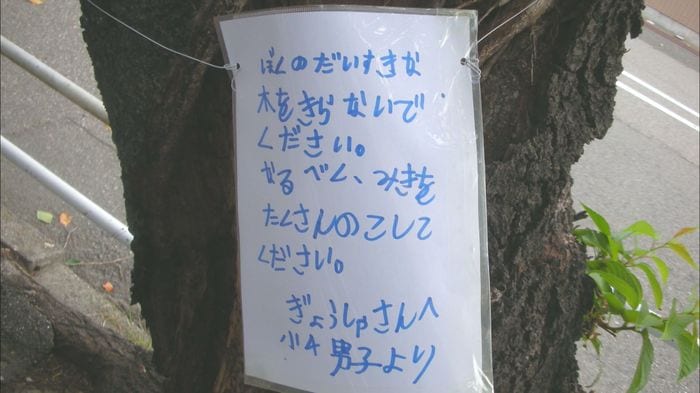 ぼくのだいすきな
木をきらないで
ください。
なるべく、みきを
たくさんのこして
ください。
ぎょうしゃさんへ
小4男子より